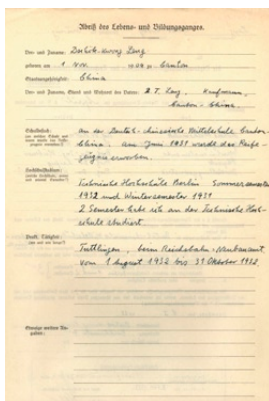 Abriß des Lebens- und Bildungsganges.
Vor- und Zuname:
geboren am 1 Nov. 1909 zu Canton
Staatsangehörigkeit: China
Vor- und Zuname, Stand und Wohnort des Vaters: Z. T. Kaufmann,
Canton - China.
Schulbesuch:
an der Deutsch-chinesische Mittelschule Canton
China. am Juni 1931 wurde das Reife-
zeugnis erworben.
Hochschulstudium:
Technische Hochschule Berlin Sommersemester
1932 und Wintersemester 1931
2 Semester habe ich an der Technische Hoch-
schule studiert
Prakt. Tätigkeit:
Tuttlingen, beim Reichsbahn-Neubauamt
vom 1 August 1932 bis 31 Oktober 1932.
Etwaige weitere An-
gaben: